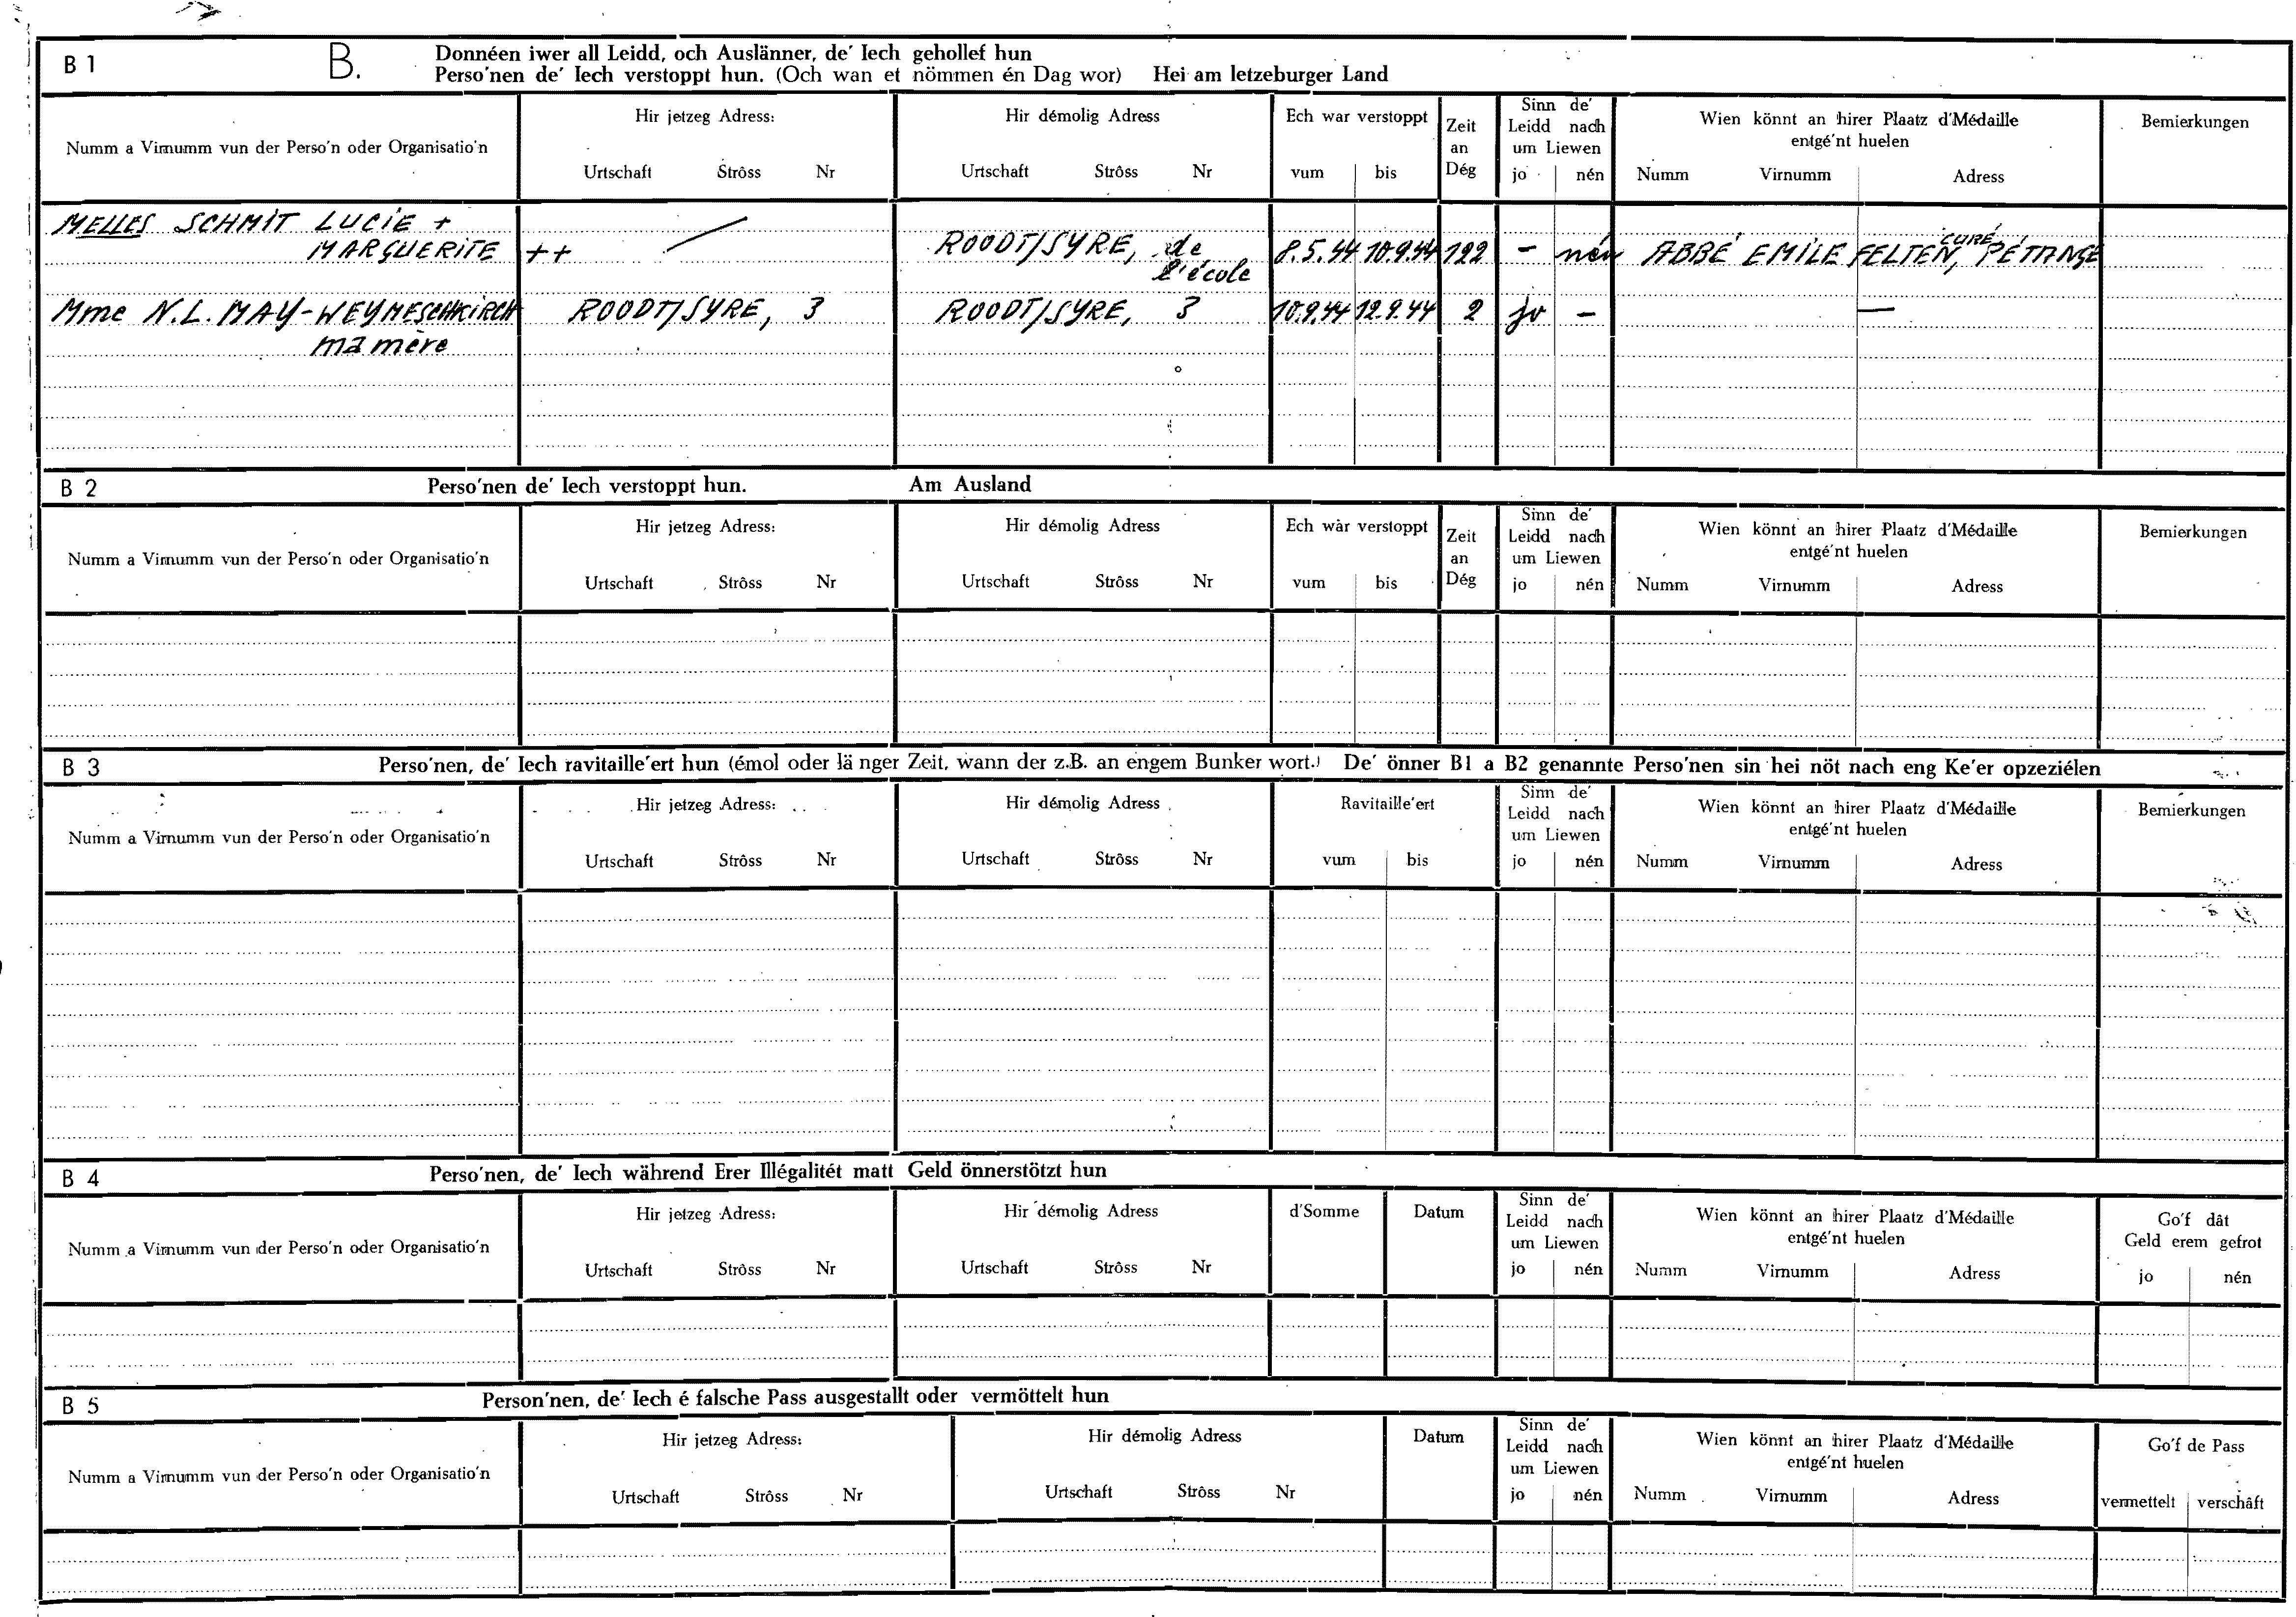 B 1 B. Donnéen iwer all Leidd, och Auslänner, de' Iech gehollef hun
Perso'nen de' Iech verstoppt hun. (Och wan et nömmen én Dag wor) Hei am letzeburger Land
Numm a Virnumm vun der Perso'n oder Organisatio'n
Hir jetzeg Adress:
Urtschaft Strôss Nr
Hir démolig Adress
Urtschaft Strôss Nr
Ech war verstoppt
vum bis
Zeit
an
Dég
Sinn de'
Leidd nach
um Liewen
jo nén
Wien könnt an hirer Plaatz d'Médaille
entgé'nt huelen
Numm Virnumm Adress
Bemierkungen
MELLES SCHMIT LUCIE +
MARGUERITE ++ ROODT/SYRE, de l'école 8.5.44 10.9.44 122 - nén ABBÉ EMILE FELTEN, CURÉ PÉTANGE
Mme N.L. MAY-WEYMESCHKIRCH ROODT/SYRE, 3 ROODT/SYRE, 3 10.9.44 12.9.44 2 jo - —
ma mère
B 2 Perso'nen de' Iech verstoppt hun. Am Ausland
Numm a Virnumm vun der Perso'n oder Organisatio'n
Hir jetzeg Adress:
Urtschaft Strôss Nr
Hir démolig Adress
Urtschaft Strôss Nr
Ech wàr verstoppt
vum bis
Zeit
an
Dég
Sinn de'
Leidd nach
um Liewen
jo nén
Wien könnt an hirer Plaatz d'Médaille
entgé'nt huelen
Numm Virnumm Adress
Bemierkungen
B 3 Perso'nen, de' Iech ravitaille'ert hun (émol oder länger Zeit, wann der z.B. an engem Bunker wort.) De' önner B1 a B2 genannte Perso'nen sin hei nöt nach eng Ke'er opzeziélen
Numm a Virnumm vun der Perso'n oder Organisatio'n
Hir jetzeg Adress:
Urtschaft Strôss Nr
Hir démolig Adress
Urtschaft Strôss Nr
Ravitaille'ert
vum bis
Sinn de'
Leidd nach
um Liewen
jo nén
Wien könnt an hirer Plaatz d'Médaille
entgé'nt huelen
Numm Virnumm Adress
Bemierkungen
B 4 Perso'nen, de' Iech während Erer Illégalitét matt Geld önnerstötzt hun
Numm a Virnumm vun der Perso'n oder Organisatio'n
Hir jetzeg Adress:
Urtschaft Strôss Nr
Hir démolig Adress
Urtschaft Strôss Nr
d'Somme
Datum
Sinn de'
Leidd nach
um Liewen
jo nén
Wien könnt an hirer Plaatz d'Médaille
entgé'nt huelen
Numm Virnumm Adress
Go'f dât
Geld erem gefrot
jo nén
B 5 Person'nen, de' Iech é falsche Pass ausgestallt oder vermöttelt hun
Numm a Virnumm vun der Perso'n oder Organisatio'n
Hir jetzeg Adress:
Urtschaft Strôss Nr
Hir démolig Adress
Urtschaft Strôss Nr
Datum
Sinn de'
Leidd nach
um Liewen
jo nén
Wien könnt an hirer Plaatz d'Médaille
entgé'nt huelen
Numm Virnumm Adress
Go'f de Pass
vermettelt verschâft